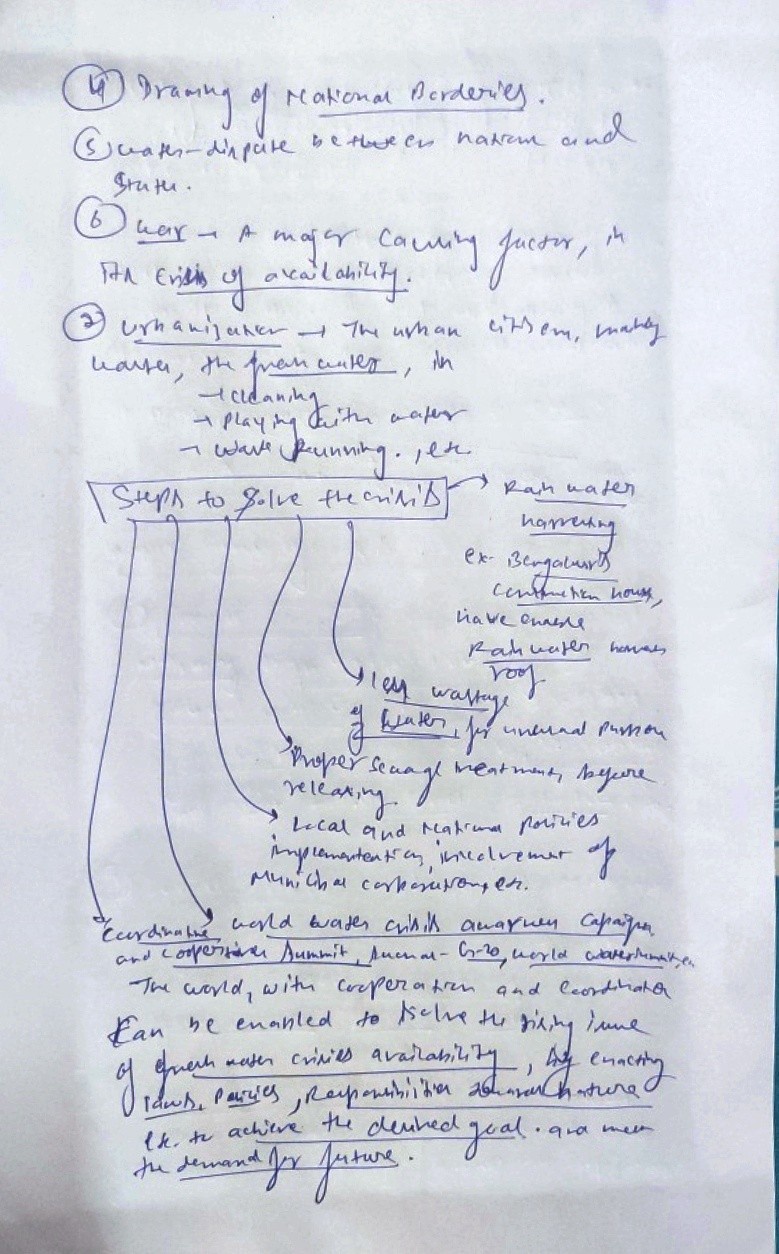 ④ Drawing of National Borderies.
⑤ water-dispute between nation and
State.
⑥ war → A major Causing factor, in
the crisis of availability.
⑦ urbanization → The urban citizen, mainly
waste, the fresh water, in
→ cleaning
→ Playing with water
→ Wave Running., etc.
Steps to Solve the crisis
→ Rain water
harvesting
ex- Bengaluru's
construction house,
have enable
Rain water
roof
less wastage
of water, for unusual purpose
Proper sewage treatment, before
releasing.
Local and National Policies
implementation, involvement of
Municipal corporation, etc.
Coordinative world water crisis awarness Capaign
and cooperative Summit, G-20, world water summit, etc.
The world, with cooperation and Coordination
Can be enabled to solve the rising issue
of fresh water crisies availability, by enacting
laws, Policies, Responsibilities toward nature
etc. to achieve the desired goal. and meet
the demand for future.